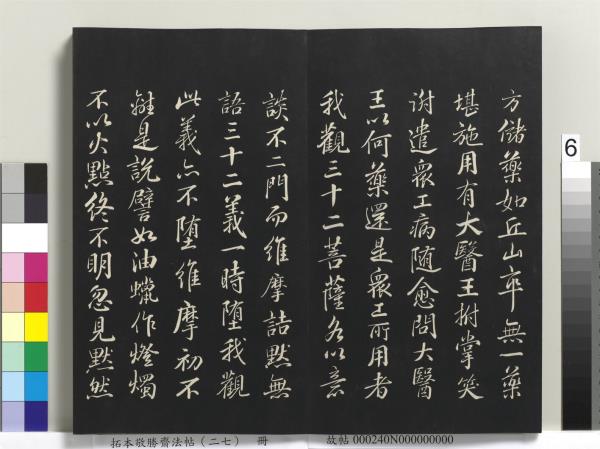 方儲藥如丘山卒無一藥
堪施用有大醫王拊掌笑
謝遣衆工病随愈問大醫
王以何藥還是衆工所用者
我觀三十二菩薩各以意
談不二門而維摩詰默無
語三十二義一時墮我觀
此義亦不墮維摩初不
離是說譬如油蠟作燈燭
不以火點終不明忽見默然
6
拓本敬勝齋法帖(二七) 冊
故帖 000240N000000000